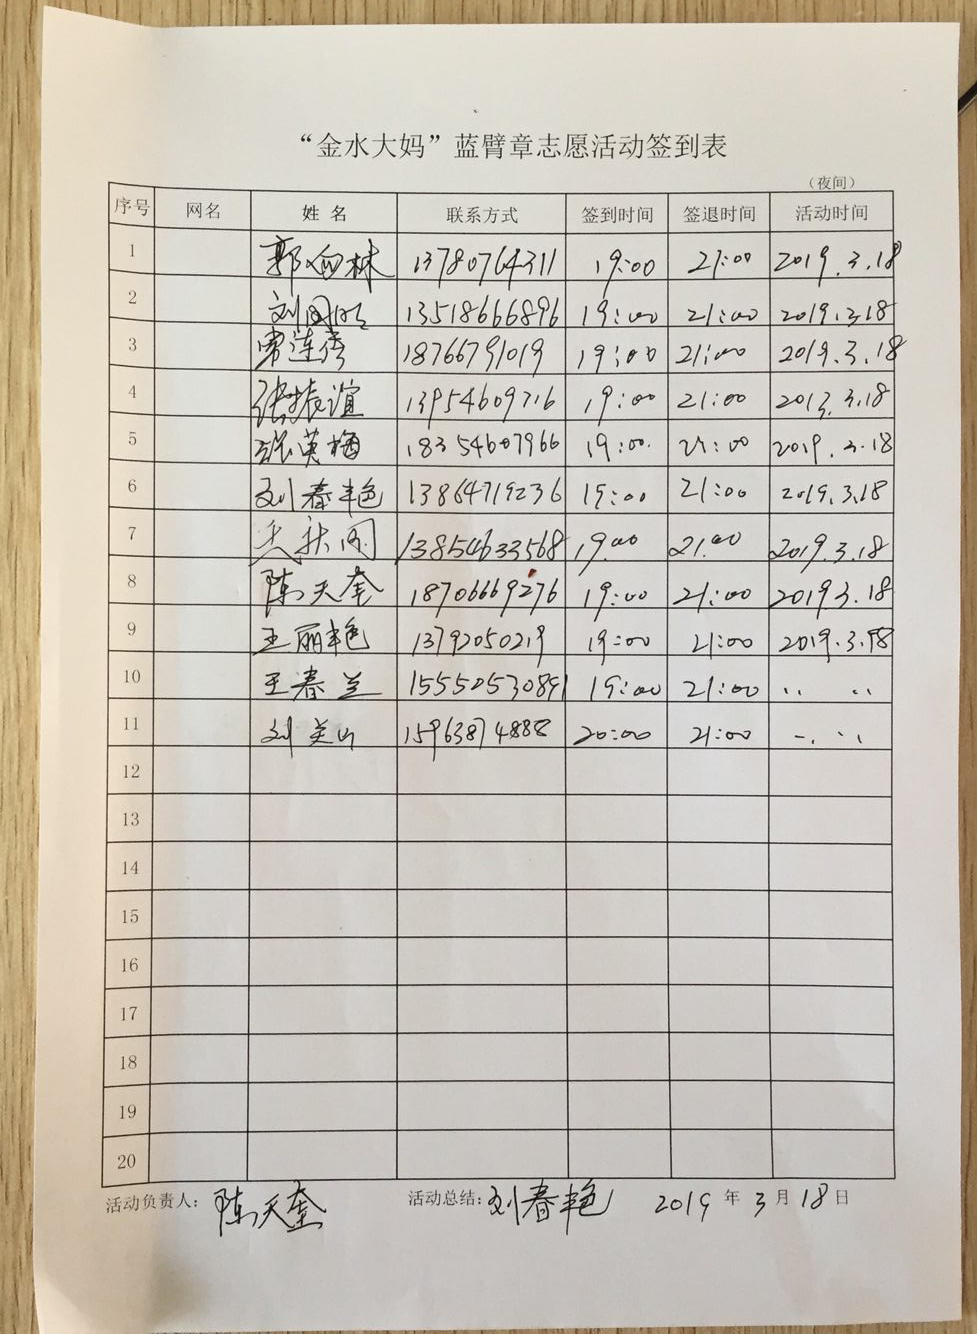 “金水大妈”蓝臂章志愿活动签到表
（夜间）
序号 网名 姓名 联系方式 签到时间 签退时间 活动时间
1 郭 林 13780764311 19:00 21:00 2019.3.18
2 刘国 13518666896 19:00 21:00 2019.3.18
3 常连秀 18766791019 19:00 21:00 2019.3.18
4 张振谊 13954609716 19:00 21:00 2019.3.18
5 张英梅 18354607966 19:00 21:00 2019.3.18
6 刘春艳 13864719236 19:00 21:00 2019.3.18
7 13854633568 19.00 21.00 2019.3.18
8 陈天奎 18706669276 19:00 21:00 2019 3.18
9 王丽艳 13792050219 19:00 21:00 2019.3.18
10 王春兰 15550530891 19:00 21:00 〃 〃
11 刘美山 15963874888 20:00 21:00 〃 〃
12
13
14
15
16
17
18
19
20
活动负责人：陈天奎 活动总结：刘春艳 2019 年 3 月 18 日